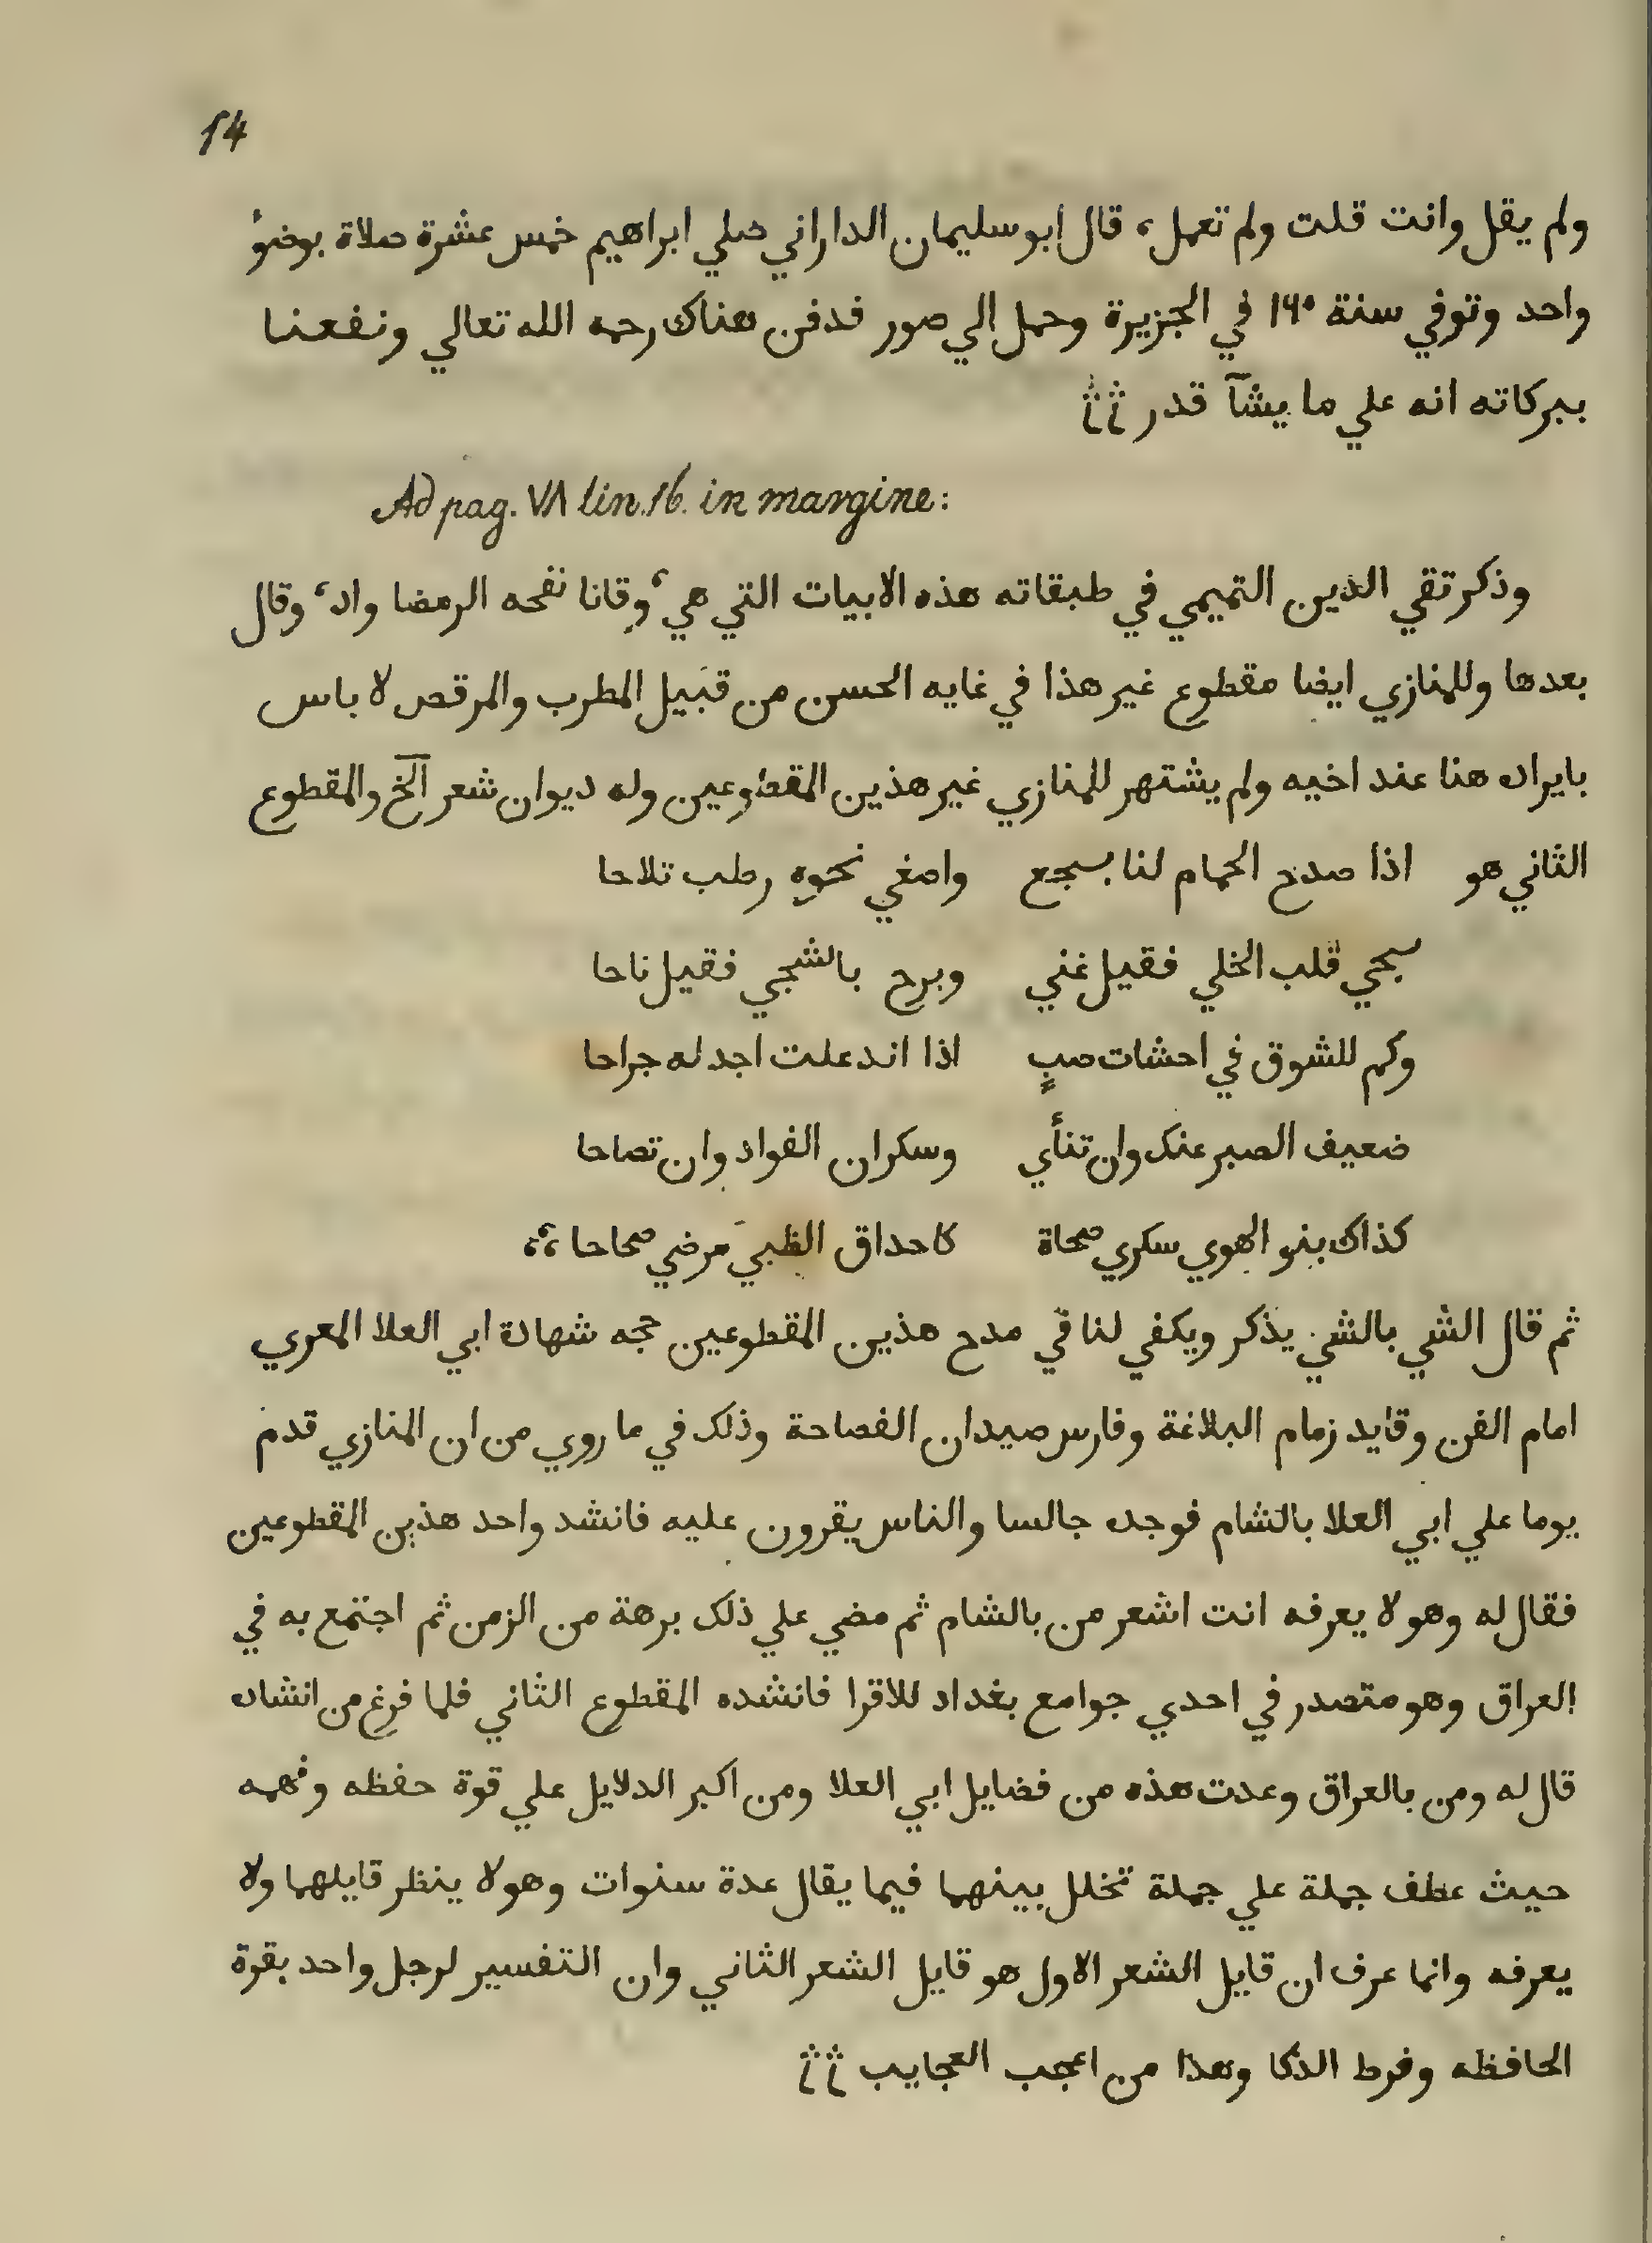 14
ولم يقل وانت قلت ولم تعمل، قال ابو سليمان الداراني صلي ابراهيم خمس عشرة صلاة بوضوٴ
واحد وتوفي سنة في الجزيرة وحمل الي صور فدفن هناك رحمه الله تعالي ونفعنا
ببركاته انه علي ما يشآ قدر
Ad pag. ٧٨ lin. 16. in margine:
وذكر تقي الدين التميمي في طبقاته هذه الابيات التي هي، وقانا نفحه الرمضا واد، وقال
بعدها وللمنازي ايضا مقطوع غير هذا في غايه الحسن من قبيل المطرب والمرقص لا باس
بايراد هنا عند اخيه ولم يشتهر للمنازي غير هذين المقطوعين وله ديوان شعر آلخ والمقطوع
الثاني هو اذا صدح الحمام لنا بسجع واصغي نحوه رطب تلاحا
سجي قلب الخلي فقيل غني وبرح بالشجي فقيل ناحا
وكم للشوق في احشات صبٍ اذا اندعلت اجد له جراحا
ضعيف الصبر عنك وان تنأي وسكران الفواد وان تصاحا
كذاك بنو الهوي سكري صحاة كاحداق الظبي مرضي صحاحا
ثم قال الشي بالشي يذكر ويكفي لنا في مدح هذين المقطوعين حجه شهادة ابي العلا المعري
امام الفن وقايد زمام البلاغة وفارس صيدان الفصاحة وذلك في ما روي من ان المنازي قدم
يوما علي ابي العلا بالشام فوجده جالسا والناس يقرون عليه فانشد واحد هذين المقطوعين
فقال له وهو لا يعرفه انت اشعر من بالشام ثم مضي علي ذلك برهة من الزمن ثم اجتمع به في
العراق وهو متصدر في احدي جوامع بغداد للاقرا فانشده المقطوع الثاني فلما فرغ من انشاده
قال له ومن بالعراق وعدت هذه من فضايل ابي العلا ومن اكبر الدلايل علي قوة حفظه وفهمه
حيث عطف جملة علي جملة تخلل بينهما فيما يقال عدة سنوات وهو لا ينظر قايلهما ولا
يعرفه وانما عرف ان قايل الشعر الاول هو قايل الشعر الثاني وان التفسير لرجل واحد بقرة
الحافظه وفرط الذكا وهذا من اعجب العجايب